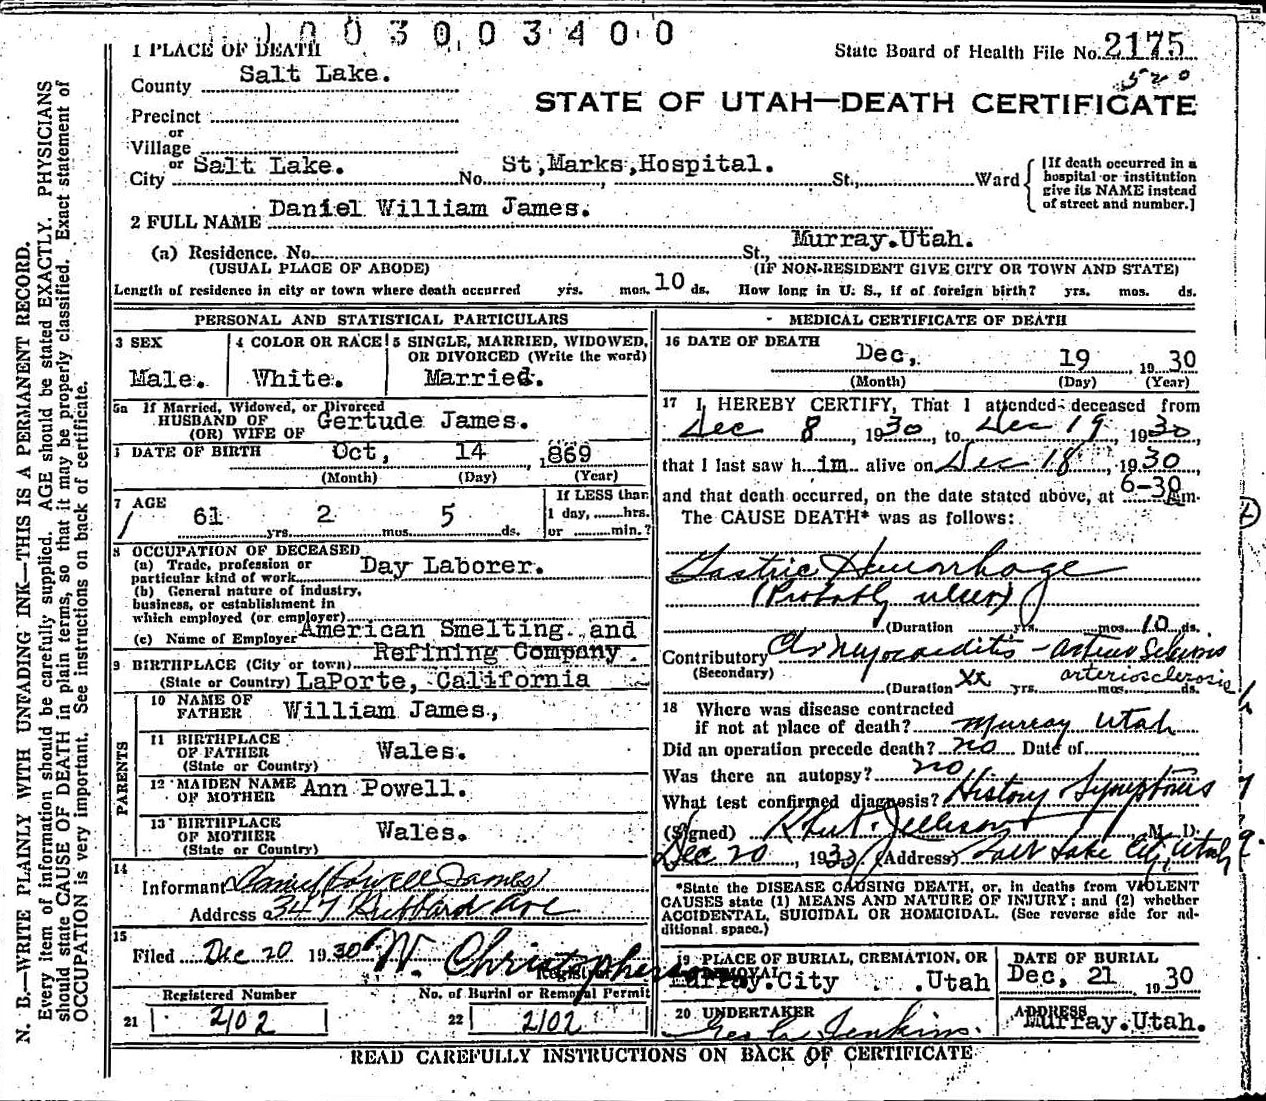 1003003400
1 PLACE OF DEATH
State Board of Health File No. 2175
County Salt Lake.
520
STATE OF UTAH—DEATH CERTIFICATE
Precinct
or
Village
or
City Salt Lake. No. St,Marks,Hospital. St., Ward
[If death occurred in a hospital or institution give its NAME instead of street and number.]
2 FULL NAME Daniel William James.
(a) Residence. No. St., Murray.Utah.
(USUAL PLACE OF ABODE) (IF NON-RESIDENT GIVE CITY OR TOWN AND STATE)
Length of residence in city or town where death occurred yrs. mos. 10 ds. How long in U. S., if of foreign birth? yrs. mos. ds.
PERSONAL AND STATISTICAL PARTICULARS
3 SEX
Male.
4 COLOR OR RACE
White.
5 SINGLE, MARRIED, WIDOWED,
OR DIVORCED (Write the word)
Married.
5a If Married, Widowed, or Divorced
HUSBAND OF
(OR) WIFE OF Gertude James.
DATE OF BIRTH Oct, 14 , 1869
(Month) (Day) (Year)
7 AGE
61 yrs. 2 mos. 5 ds.
If LESS than
1 day, hrs.
or min.?
8 OCCUPATION OF DECEASED
(a) Trade, profession or
particular kind of work Day Laborer.
(b) General nature of industry,
business, or establishment in
which employed (or employer)
(c) Name of Employer American Smelting and
Refining Company.
9 BIRTHPLACE (City or town)
(State or Country) LaPorte, California
PARENTS
10 NAME OF
FATHER William James,
11 BIRTHPLACE
OF FATHER
(State or Country) Wales.
12 MAIDEN NAME
OF MOTHER Ann Powell.
13 BIRTHPLACE
OF MOTHER
(State or Country) Wales.
14
Informant Daniel Powell James
Address 347 Hubbard Ave
15
Filed Dec 20 1930 W. Christopherson
Registrar
Registered Number
21 2102
No. of Burial or Removal Permit
22 2102
MEDICAL CERTIFICATE OF DEATH
16 DATE OF DEATH
Dec, 19 1930
(Month) (Day) (Year)
17 I, HEREBY CERTIFY, That I attended deceased from
Dec 8, 1930, to Dec 19, 1930,
that I last saw him alive on Dec 18, 1930,
and that death occurred, on the date stated above, at 6-30 Am.
The CAUSE DEATH* was as follows:
Gastric Hemorrhage
(Probably ulcer)
(Duration yrs. mos. 10 ds.
Contributory Chr Myocarditis - arterio Sclerosis
(Secondary) arteriosclerosis
(Duration xx yrs. mos. ds.
18 Where was disease contracted
if not at place of death? Murray Utah
Did an operation precede death? no Date of
Was there an autopsy? no
What test confirmed diagnosis? History Symptoms
(Signed) Jellison M. D.
Dec 20, 1930 (Address) Salt Lake City, Utah
*State the DISEASE CAUSING DEATH, or, in deaths from VIOLENT
CAUSES state (1) MEANS AND NATURE OF INJURY; and (2) whether
ACCIDENTAL, SUICIDAL OR HOMICIDAL. (See reverse side for ad-
ditional space.)
19 PLACE OF BURIAL, CREMATION, OR
REMOVAL
Murray.City .Utah
DATE OF BURIAL
Dec, 21 1930
20 UNDERTAKER
Jenkins.
ADDRESS
Murray.Utah.
READ CAREFULLY INSTRUCTIONS ON BACK OF CERTIFICATE
N. B.—WRITE PLAINLY WITH UNFADING INK—THIS IS A PERMANENT RECORD.
Every item of information should be carefully supplied. AGE should be stated EXACTLY. PHYSICIANS
should state CAUSE OF DEATH in plain terms, so that it may be properly classified. Exact statement of
OCCUPATION is very important. See instructions on back of certificate.